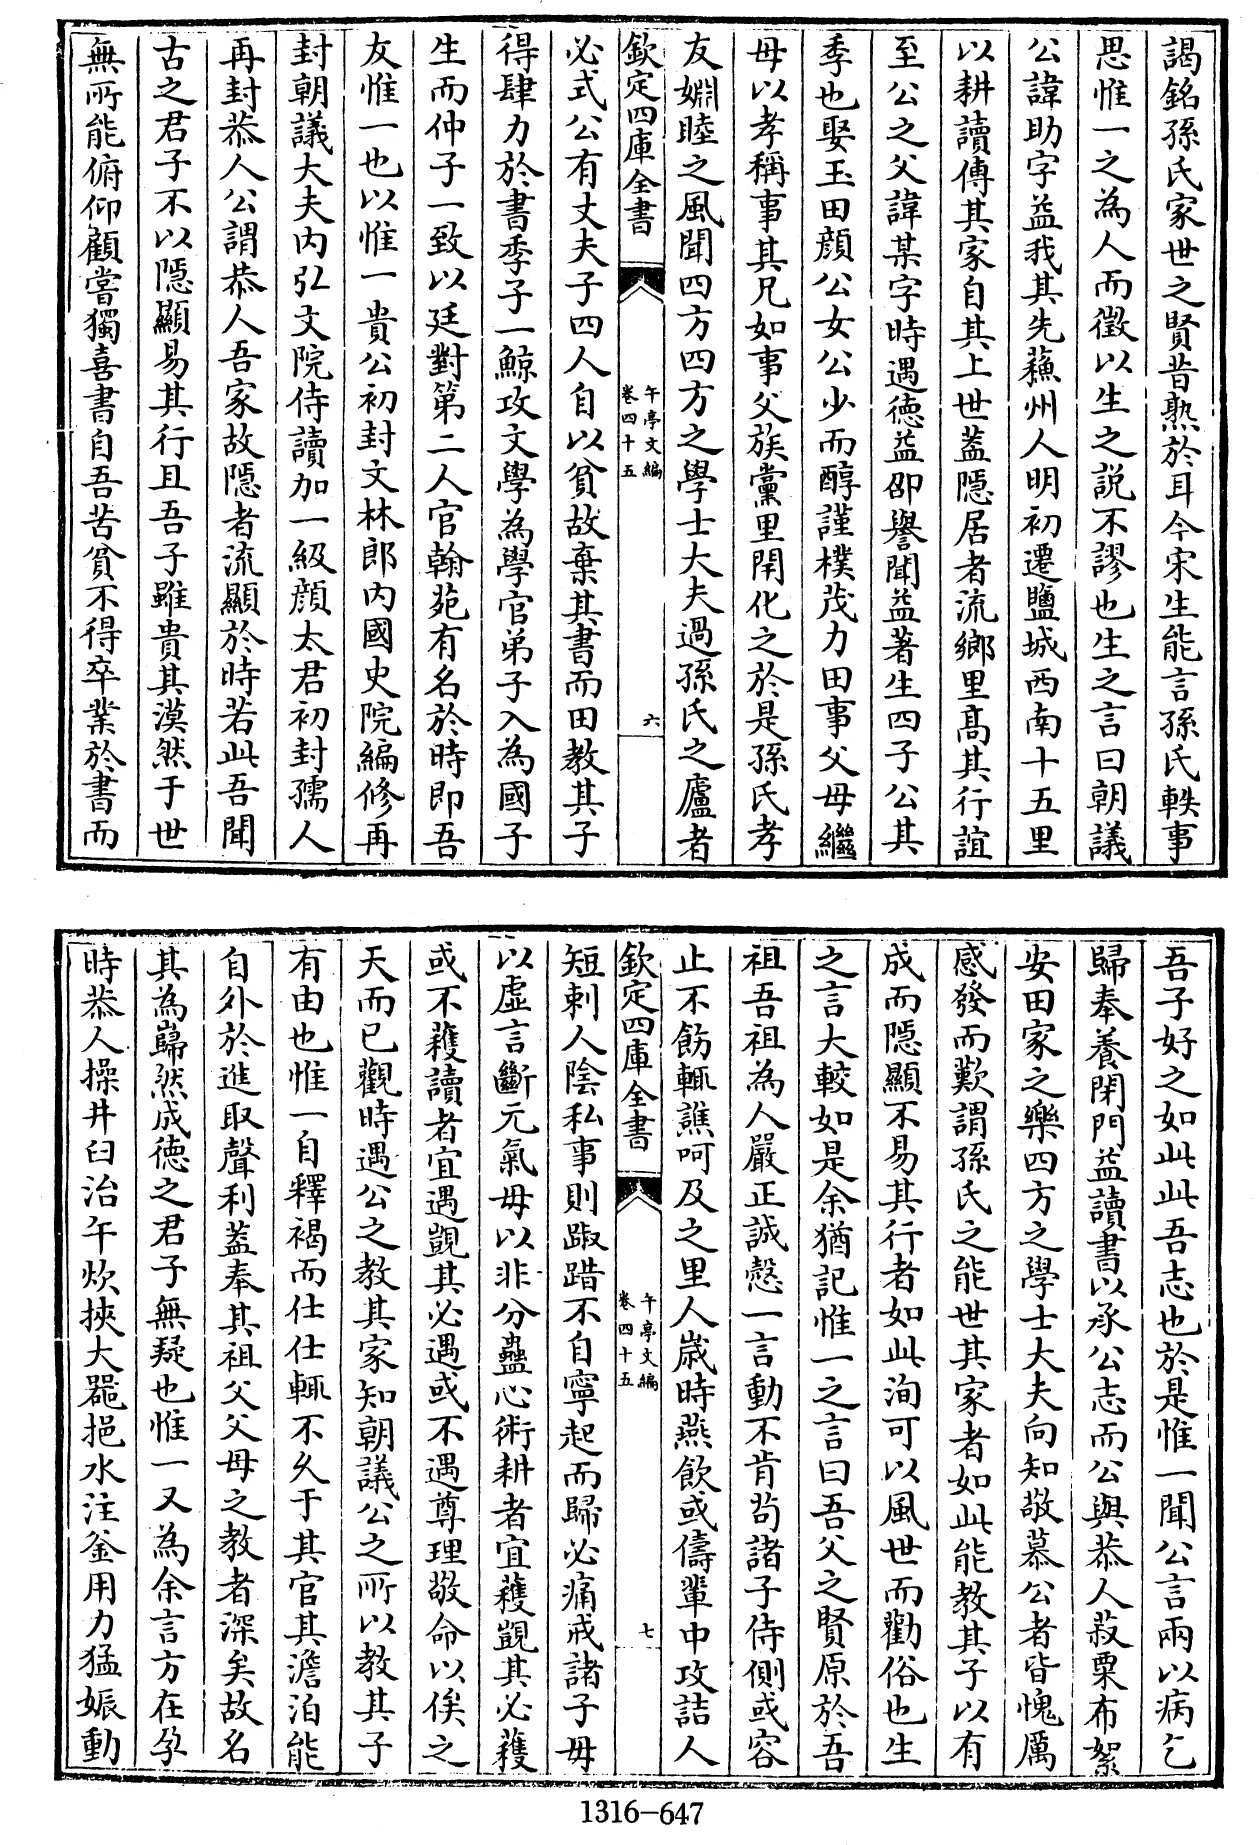 謁銘孫氏家世之賢昔熟於耳今宋生能言孫氏軼事
思惟一之為人而徵以生之説不謬也生之言曰朝議
公諱助字益我其先蘓州人明初遷鹽城西南十五里
以耕讀傳其家自其上世葢隠居者流鄉里髙其行誼
至公之父諱某字時遇徳益卲譽聞益著生四子公其
季也娶玉田顔公女公少而醇謹樸茂力田事父母繼
母以孝稱事其兄如事父族黨里閈化之於是孫氏孝
友婣睦之風聞四方四方之學士大夫過孫氏之廬者
欽定四庫全書
午亭文編
卷四十五
六
必式公有丈夫子四人自以貧故棄其書而田教其子
得肆力於書季子一鯨攻文學為學官弟子入為國子
生而仲子一致以廷對第二人官翰苑有名於時即吾
友惟一也以惟一貴公初封文林郎内國史院編修再
封朝議大夫内弘文院侍讀加一級顔太君初封孺人
再封恭人公謂恭人吾家故隠者流顯於時若此吾聞
古之君子不以隠顯易其行且吾子雖貴其漠然于世
無所能俯仰顧嘗獨喜書自吾苦貧不得卒業於書而
吾子好之如此此吾志也於是惟一聞公言兩以病乞
歸奉養閉門益讀書以承公志而公與恭人菽粟布絮
安田家之樂四方之學士大夫向知敬慕公者皆愧厲
感發而歎謂孫氏之能世其家者如此能教其子以有
成而隠顯不易其行者如此洵可以風世而勸俗也生
之言大較如是余猶記惟一之言曰吾父之賢原於吾
祖吾祖為人嚴正誠慤一言動不肯茍諸子侍側或容
止不飭輒譙呵及之里人嵗時燕飲或儔輩中攻詰人
欽定四庫全書
午亭文編
卷四十五
七
短刺人陰私事則踧踖不自寧起而歸必痛戒諸子毋
以虚言斷元氣毋以非分蠱心術耕者宜穫覬其必穫
或不穫讀者宜遇覬其必遇或不遇尊理敬命以俟之
天而已觀時遇公之教其家知朝議公之所以教其子
有由也惟一自釋褐而仕仕輒不久于其官其澹泊能
自外於進取聲利葢奉其祖父父母之教者深矣故名
其為巋然成徳之君子無疑也惟一又為余言方在孕
時恭人操井臼治午炊挾大甖挹水注釜用力猛娠動
1316-647